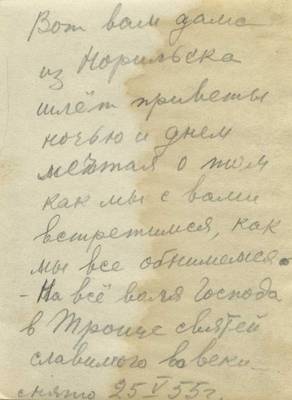 Вот вам дама
из Норильска
шлёт приветы
ночью и днем
мечтая о том
как мы с вами
встретимся, как
мы все обнимемся.
- На всё воля Господа
в Троице святей
славимого во веки
снято 25 V 55 г.